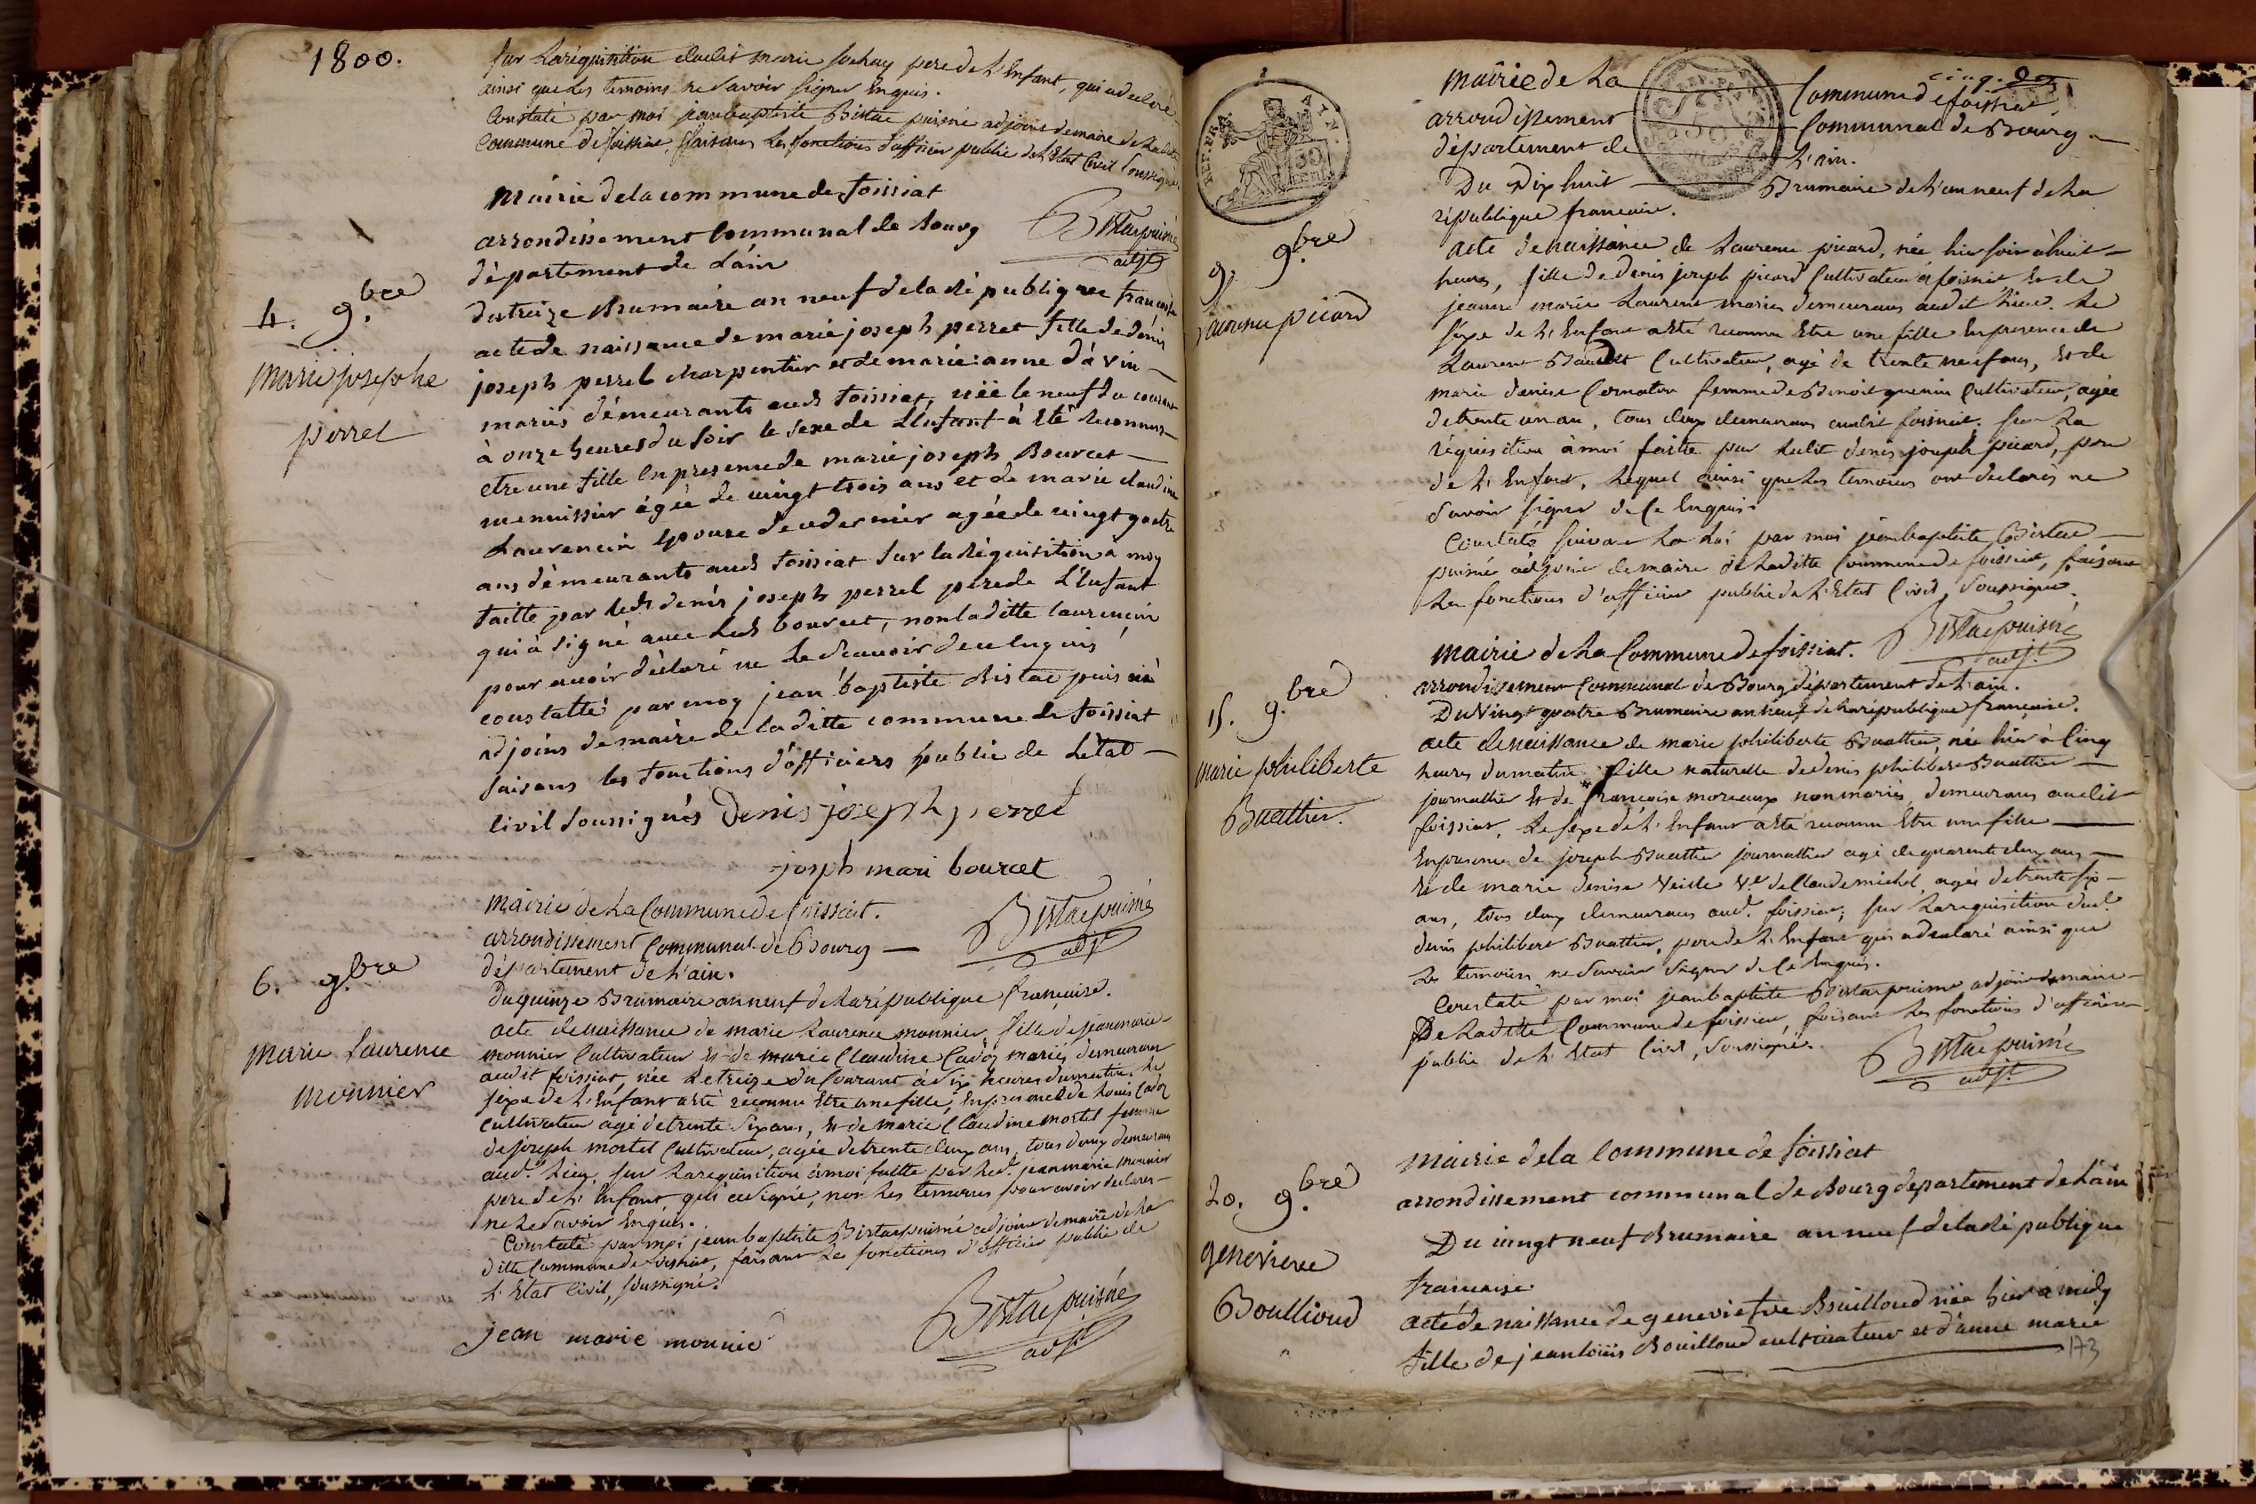 1800.
Sur La réquisition dudit marie Sochay pere de L'Enfant, qui a déclaré
ainsi que Les temoins ne Savoir Signer Enquis.
Constaté par moi jeanbaptiste Bistac puisné adjoint demaire de Ladite
Commune de foissiat, faisant Les fonctions d'officier public de L'Etat Civil Soussigné
Bistac puisné
adjt
4. 9.bre
Marie josephe
perret
Mairie de la commune de foissiat
arrondissement Communal de bourg
département de L'ain
du treize Brumaire an neuf de la république francaise
acte de naissance de marie joseph perret fille de denis
joseph perret charpentier et de marie anne d'avin
mariés démeurants aud foissiat, née le neuf du courant
à onze heures du soir le sexe de L'Enfant à Eté reconnu
etre une fille En presence de marie joseph Bourcet
menuisier égée de vingt trois ans et de marie claudine
Laurencin Epouse de ce dernier agée de vingt quatre
ans démeurants aud foissiat Sur la réquisition à moy
faitte par led denis joseph perret pere de L'Enfant
qui à signé avec Led bourcet, non ladite laurencin
pour avoir déclaré ne Le Scavoir de ce Enquis
constatté par moy jean baptiste Bistac puisné
adjoint de maire de la ditte commune de foissiat
faisans les fonctions d'officiers public de L'état
civil soussignés Denis joseph perret
joseph mari bourcet
Bistac puiné
adjt
6. 9.bre
Marie Laurence
Monnier
Mairie de La Commune de foissiat.
arrondissement Communal de Bourg
département de L'ain.
Du quinze Brumaire an neuf de La république française.
acte de naissance de marie Laurence monnier, fille de jeanmarie
monnier Cultivateur Et de marie Claudine Cadoz mariés demeurans
audit foissiat, née Le treize du Courant à Six heures du matin. Le
Sexe de L'Enfant a Eté reconnu Etre une fille, En presence de Louis Cadoz
Cultivateur agé de trente Six ans, Et de marie Claudine mortel femme
de joseph mortel Cultivateur, agée de trente deux ans, tous deux demeurans
aud. Lieu, sur La requisition à moi faitte par Led. jeanmarie monnier
pere de L'Enfant, qui a Signé, non Les temoins pour avoir déclarés
ne Le Savoir Enquis.
Constaté par moi jeanbaptiste Bistac puisné adjoint de maire de La
ditte Commune de foissiat, faisant Les fonctions d'officier public de
L'Etat Civil, Soussigné.
jean marie monnié
Bistac puisné
adjt
cinq.
Mairie de La Commune de foissiat
arrondissement Communal de Bourg
département de L'ain.
Du Dix huit Brumaire de L'an neuf de La
république francaise.
REP. FRA. AIN.
9. 9.bre
Laurence picard
acte de naissance de Laurence picard, née hier soir à huit
heures, fille de denis joseph picard Cultivateur à foissiat Et de
jeanne marie Laurent mariés demeurans audit Lieu. Le
Sexe de L'Enfant a Eté reconnu Etre une fille En presence de
Laurent Baudet Cultivateur, agé de trente neuf ans, Et de
marie denise Cornaton femme de Benoit guenin Cultivateur, agée
de trente un an, tous deux demeurans audit foissiat. Sur La
réquisition à moi faitte par Ledit denis joseph picard, pere
de L'Enfant, Lequel ainsi que Les temoins ont déclarés ne
Savoir Signer de Ce Enquis.
Constaté Suivant La Loi par moi jeanbaptiste Bistac
puisné adjoint de maire de Laditte Commune de foissiat, faisant
Les fonctions d'officier public de L'Etat Civil, Soussigné.
Bistac puisné
adjt.
15. 9.bre
Marie philiberte
Buathier.
Mairie de La Commune de foissiat.
arrondissement Communal de Bourg département de L'ain.
Du Vingt quatre Brumaire an neuf de La république française.
acte de naissance de marie philiberte Buathier, née hier à Cinq
heures du matin fille naturelle de denis philibert Buathier
journallier Et de françoise moreaux non mariés, demeurans audit
foissiat, Le Sexe de L'Enfant a Eté reconnu Etre une fille
En presence de joseph Buathier journallier agé de quarente deux ans
Et de marie denise Veille Ve. de Claude michel, agée de trente Six
ans, tous deux demeurans aud. foissiat, sur La requisition dud.
denis philibert Buathier, pere de L'Enfant qui a declaré ainsi que
Les temoins ne Savoir Signer de Ce Enquis.
Constaté par moi jeanbaptiste Bistac puisné adjoint de maire
De Laditte Commune de foissiat, faisant Les fonctions d'officier
public de L'Etat Civil, Soussigné.
Bistac puiné
adjt.
20. 9.bre
genevieve
Boullioud
Mairie de la Commune de foissiat
arrondissement communal de Bourg département de L'ain
Du vingt neuf Brumaire an neuf de la république
francaise
acte de naissance de genevieve Bouilloud née hier à midy
fille de jean louis Bouilloud cultivateur et d'anne marie
173